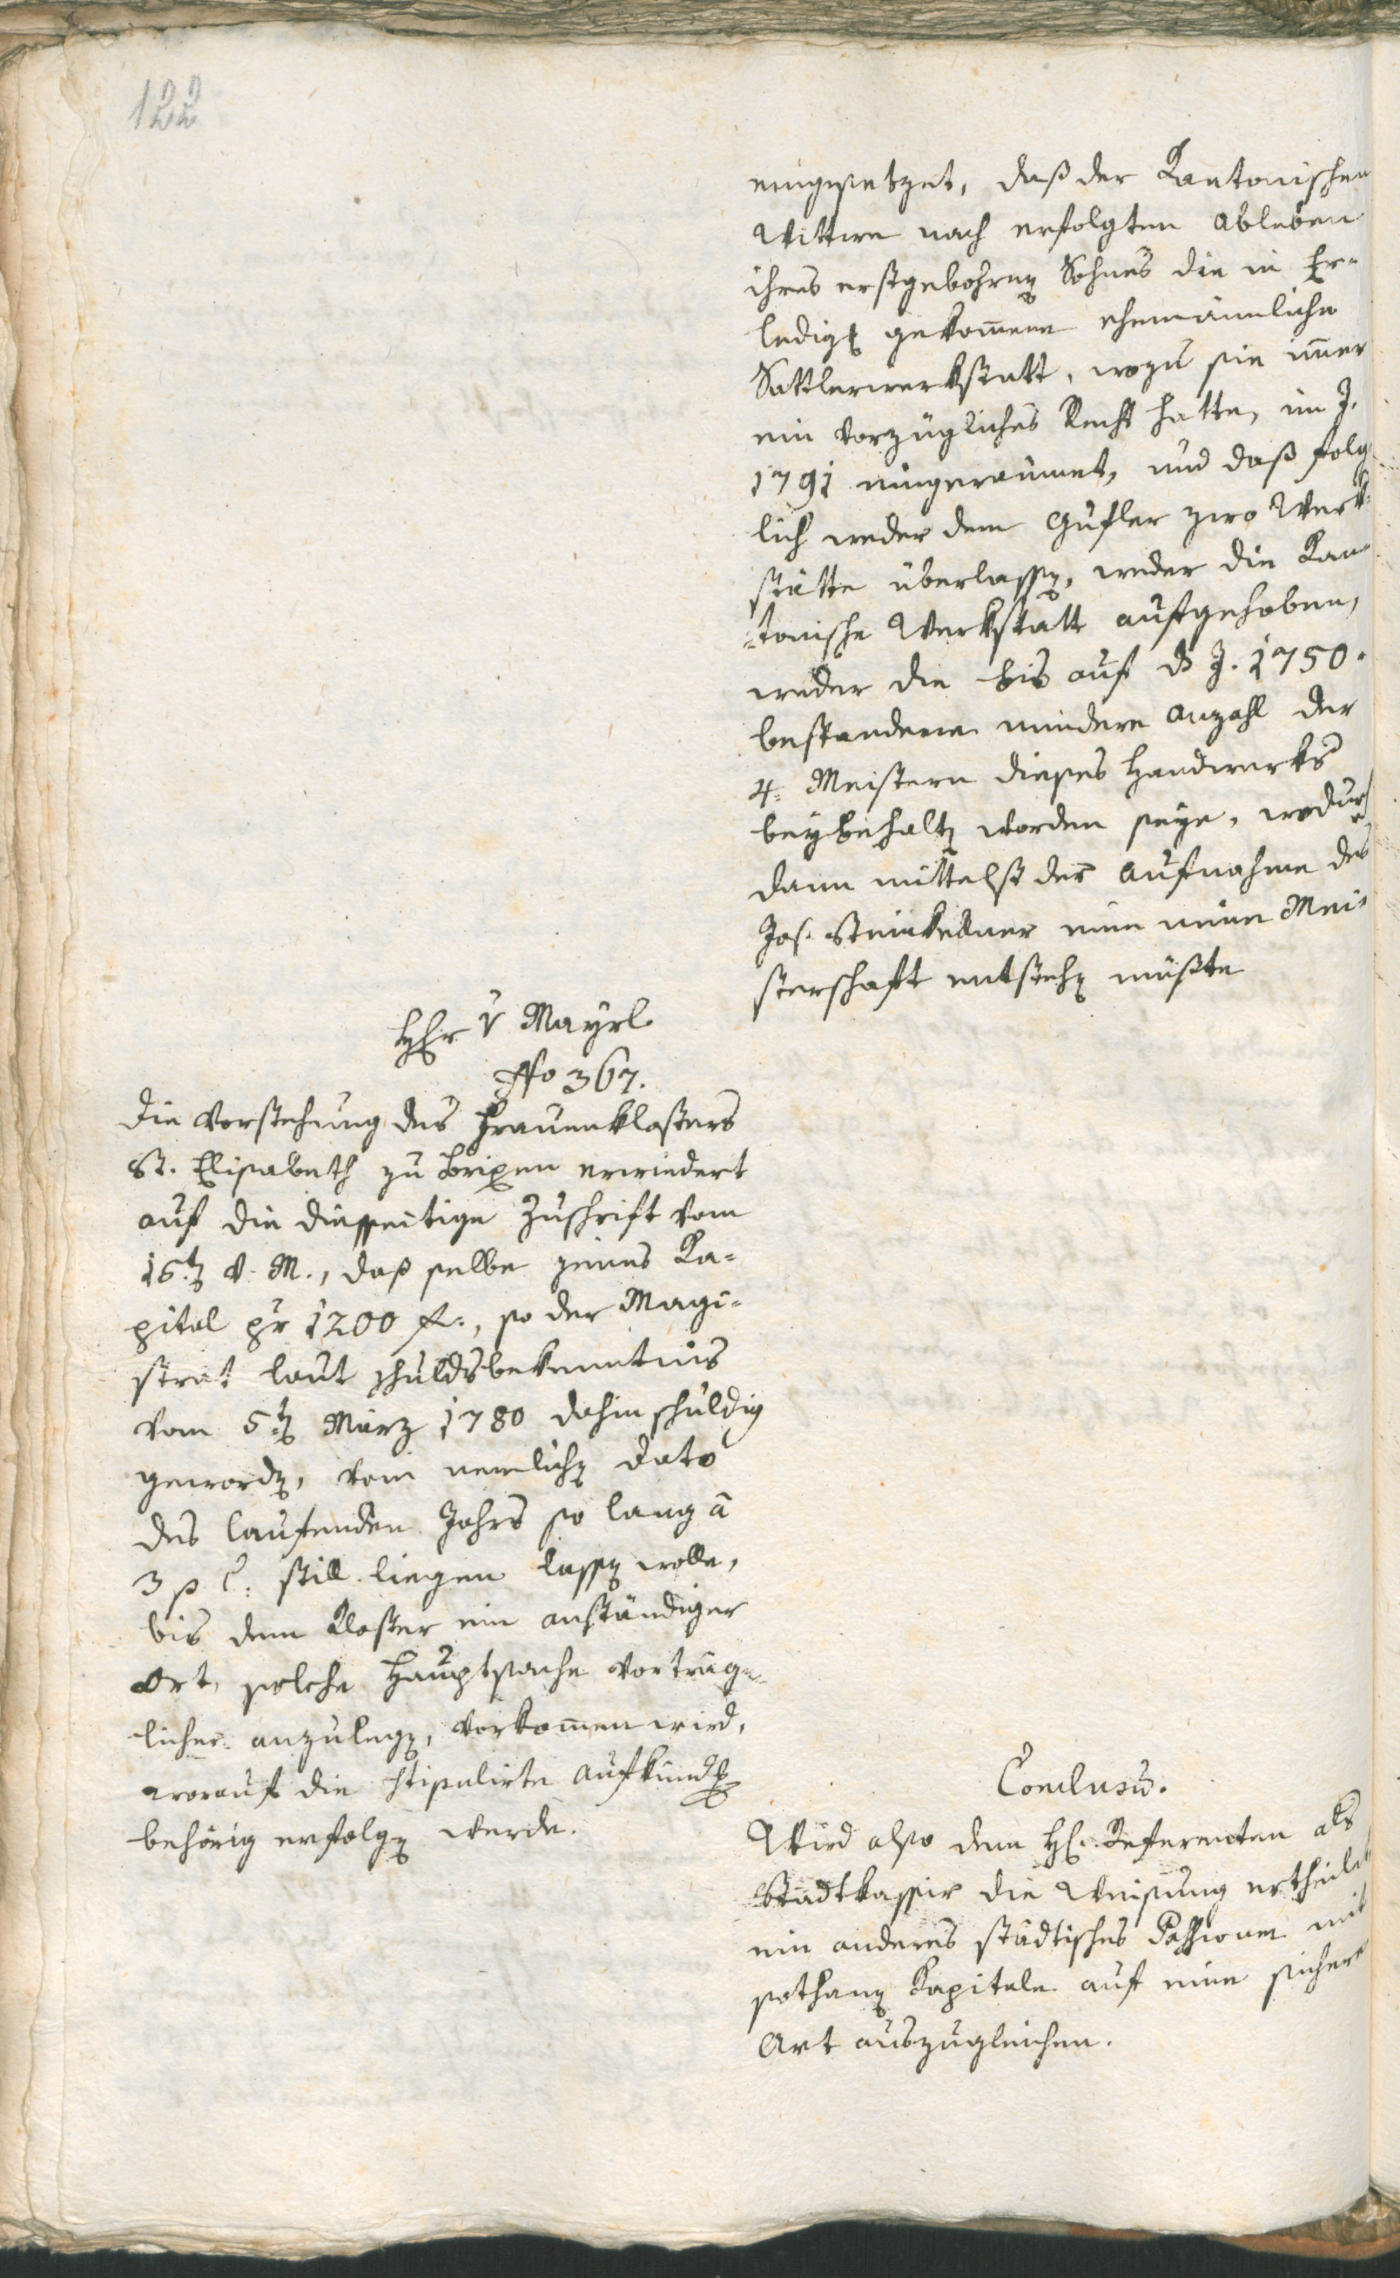 122
eingesetzet, daß der Kantonischen
Wittwe nach erfolgten Ableben
ihres erstgebohrnen Sohnes die in Er-
ledig gekom̄ene ehemännliche
Sattlerwerkstatt, wozu sie im̄er
ein vorzügliches Recht hatte, im J.
1791 eingeraumet, und daß folg-
lich weder dem Gufler zwo Werk-
stätte überlassen, weder die Kan-
tonische Werkstatt aufgehoben,
weder die bis auf das J. 1750.
bestandene mindere Anzahl der
4. Meistern dieses Handwerks
beybehalten worden seye, wodurch
dann mittelst der Aufnahme des
Jos. Steinkellner eine neue Mei-
sterschaft entstehen müßte
Herr v Mayrl
Nro 367.
Die Vorstehung des Frauenklosters
St. Elisabeth zu Brixen erwiedert
auf die diesseitige Zuschrift vom
15.ten v. M., daß selbe jenes Ka-
pital pr 1200 f., so der Magi-
strat laut Schuldsbekenntnis
vom 5.ten März 1780 dahin schuldig
geworden, vom nemlichen Dato
des laufenden Jahrs so lang à
3 p C. still liegen lassen wolle,
bis dem Kloster ein anständiger
Ort, solche Hauptsache vorträg-
licher anzulegen, vorkom̄en wird,
worauf die stipulirte Aufkündung
behörig erfolgen werde.
Conclusū.
Wird also dem H. Referenten als
Stadtkassier die Weisung ertheilet
ein anderes städtisches Passivum mit
sothanen Kapitale auf eine sichere
Art auszugleichen.